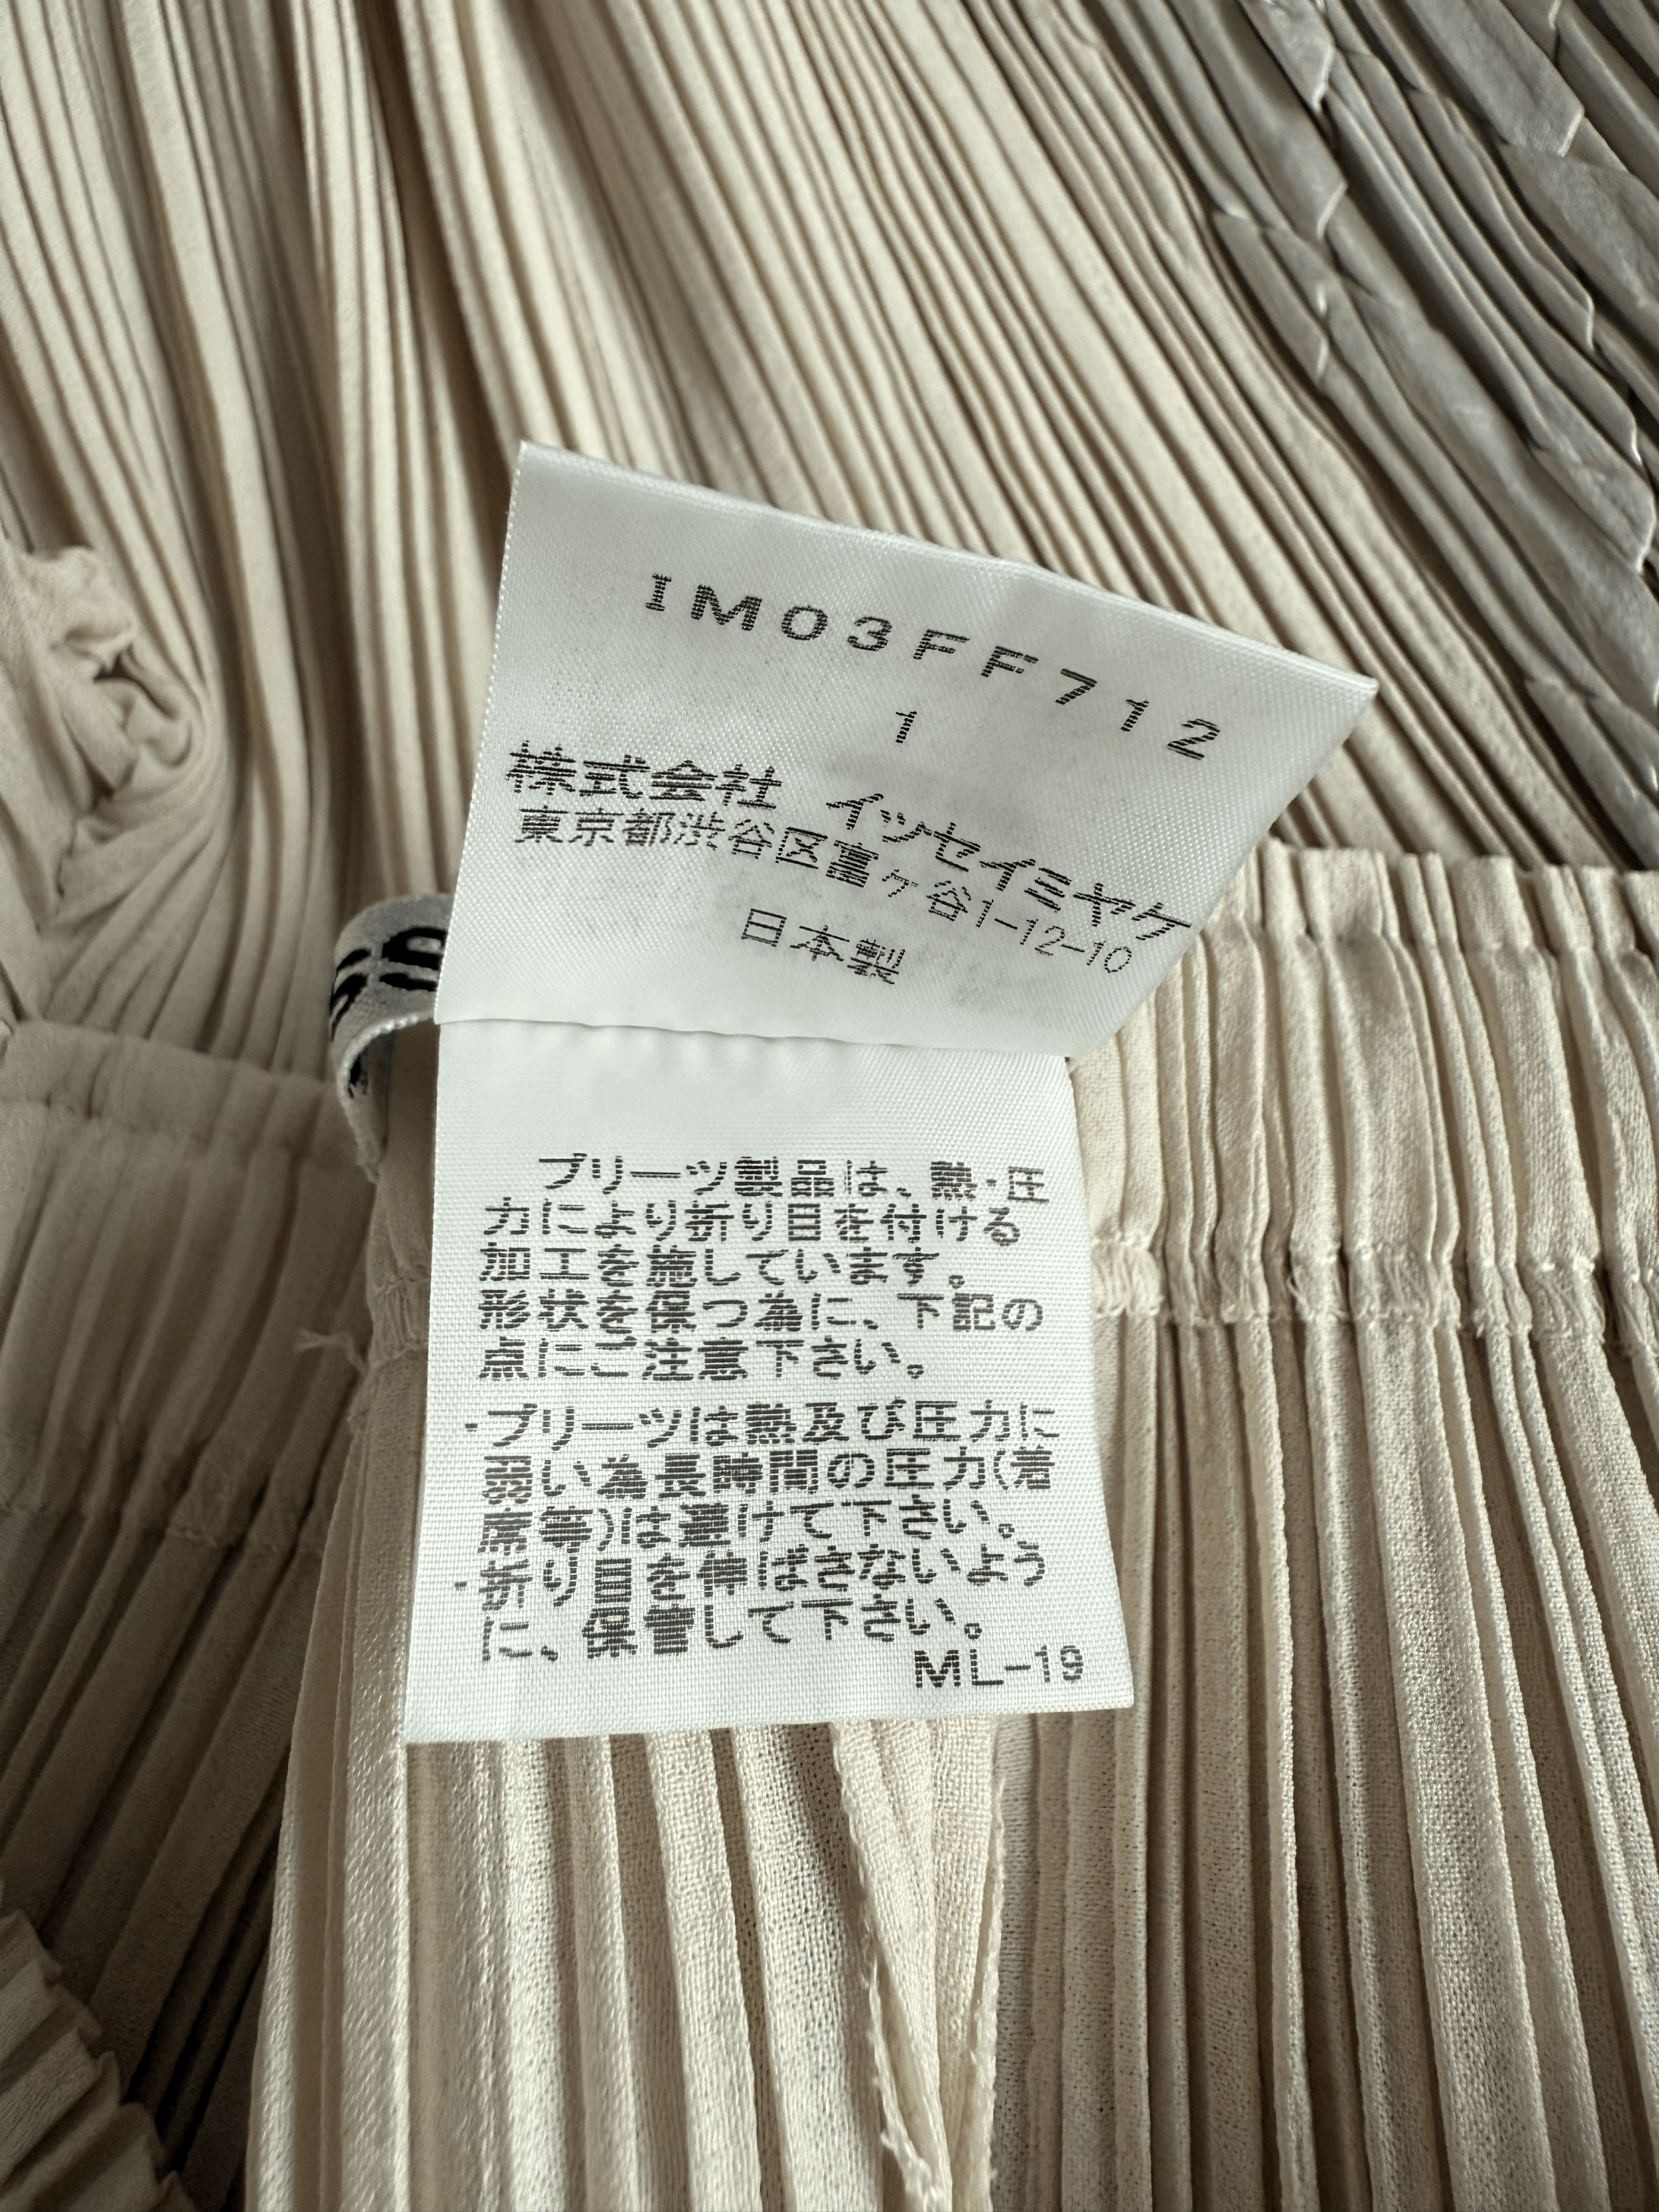 IM03FF712
1
株式会社 イッセイミヤケ
東京都渋谷区富ヶ谷1-12-10
日本製
プリーツ製品は、熱・圧
力により折り目を付ける
加工を施しています。
形状を保つ為に、下記の
点にご注意下さい。
・プリーツは熱及び圧力に
弱い為長時間の圧力(着
席等)は避けて下さい。
・折り目を伸ばさないよう
に、保管して下さい。
ML-19